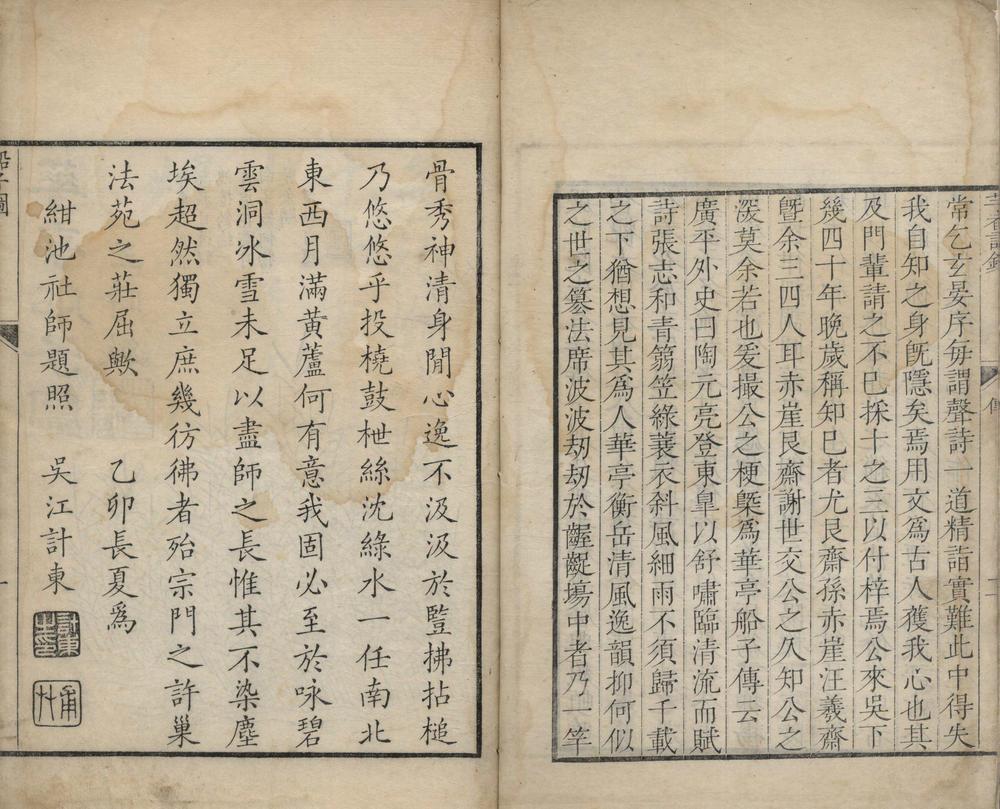 常乞玄晏序每謂聲詩一道精詣實難此中得失
我自知之身旣隱矣焉用文爲古人獲我心也其
及門輩請之不已採十之三以付梓焉公來吳下
幾四十年晚歲稱知已者尤艮齋孫赤崖汪羲齋
曁余三四人耳赤崖艮齋謝世交公之久知公之
深莫余若也爰撮公之梗槩爲華亭船子傳云
廣平外史曰陶元亮登東臯以舒嘯臨清流而賦
詩張志和青篛笠綠蓑衣斜風細雨不須歸千載
之下猶想見其爲人華亭衡岳清風逸韻抑何似
之世之篡法席波波刼刼於齷齪塲中者乃一竿
傳
船子圖
骨秀神清身閒心逸不汲汲於豎拂拈槌
乃悠悠乎投橈鼓枻絲沈綠水一任南北
東西月滿黃蘆何有意我固必至於咏碧
雲洞冰雪未足以盡師之長惟其不染塵
埃超然獨立庶幾彷彿者殆宗門之許巢
法苑之莊屈歟 乙卯長夏爲
紺池社師題照 吳江計東
計東之印
甫艸